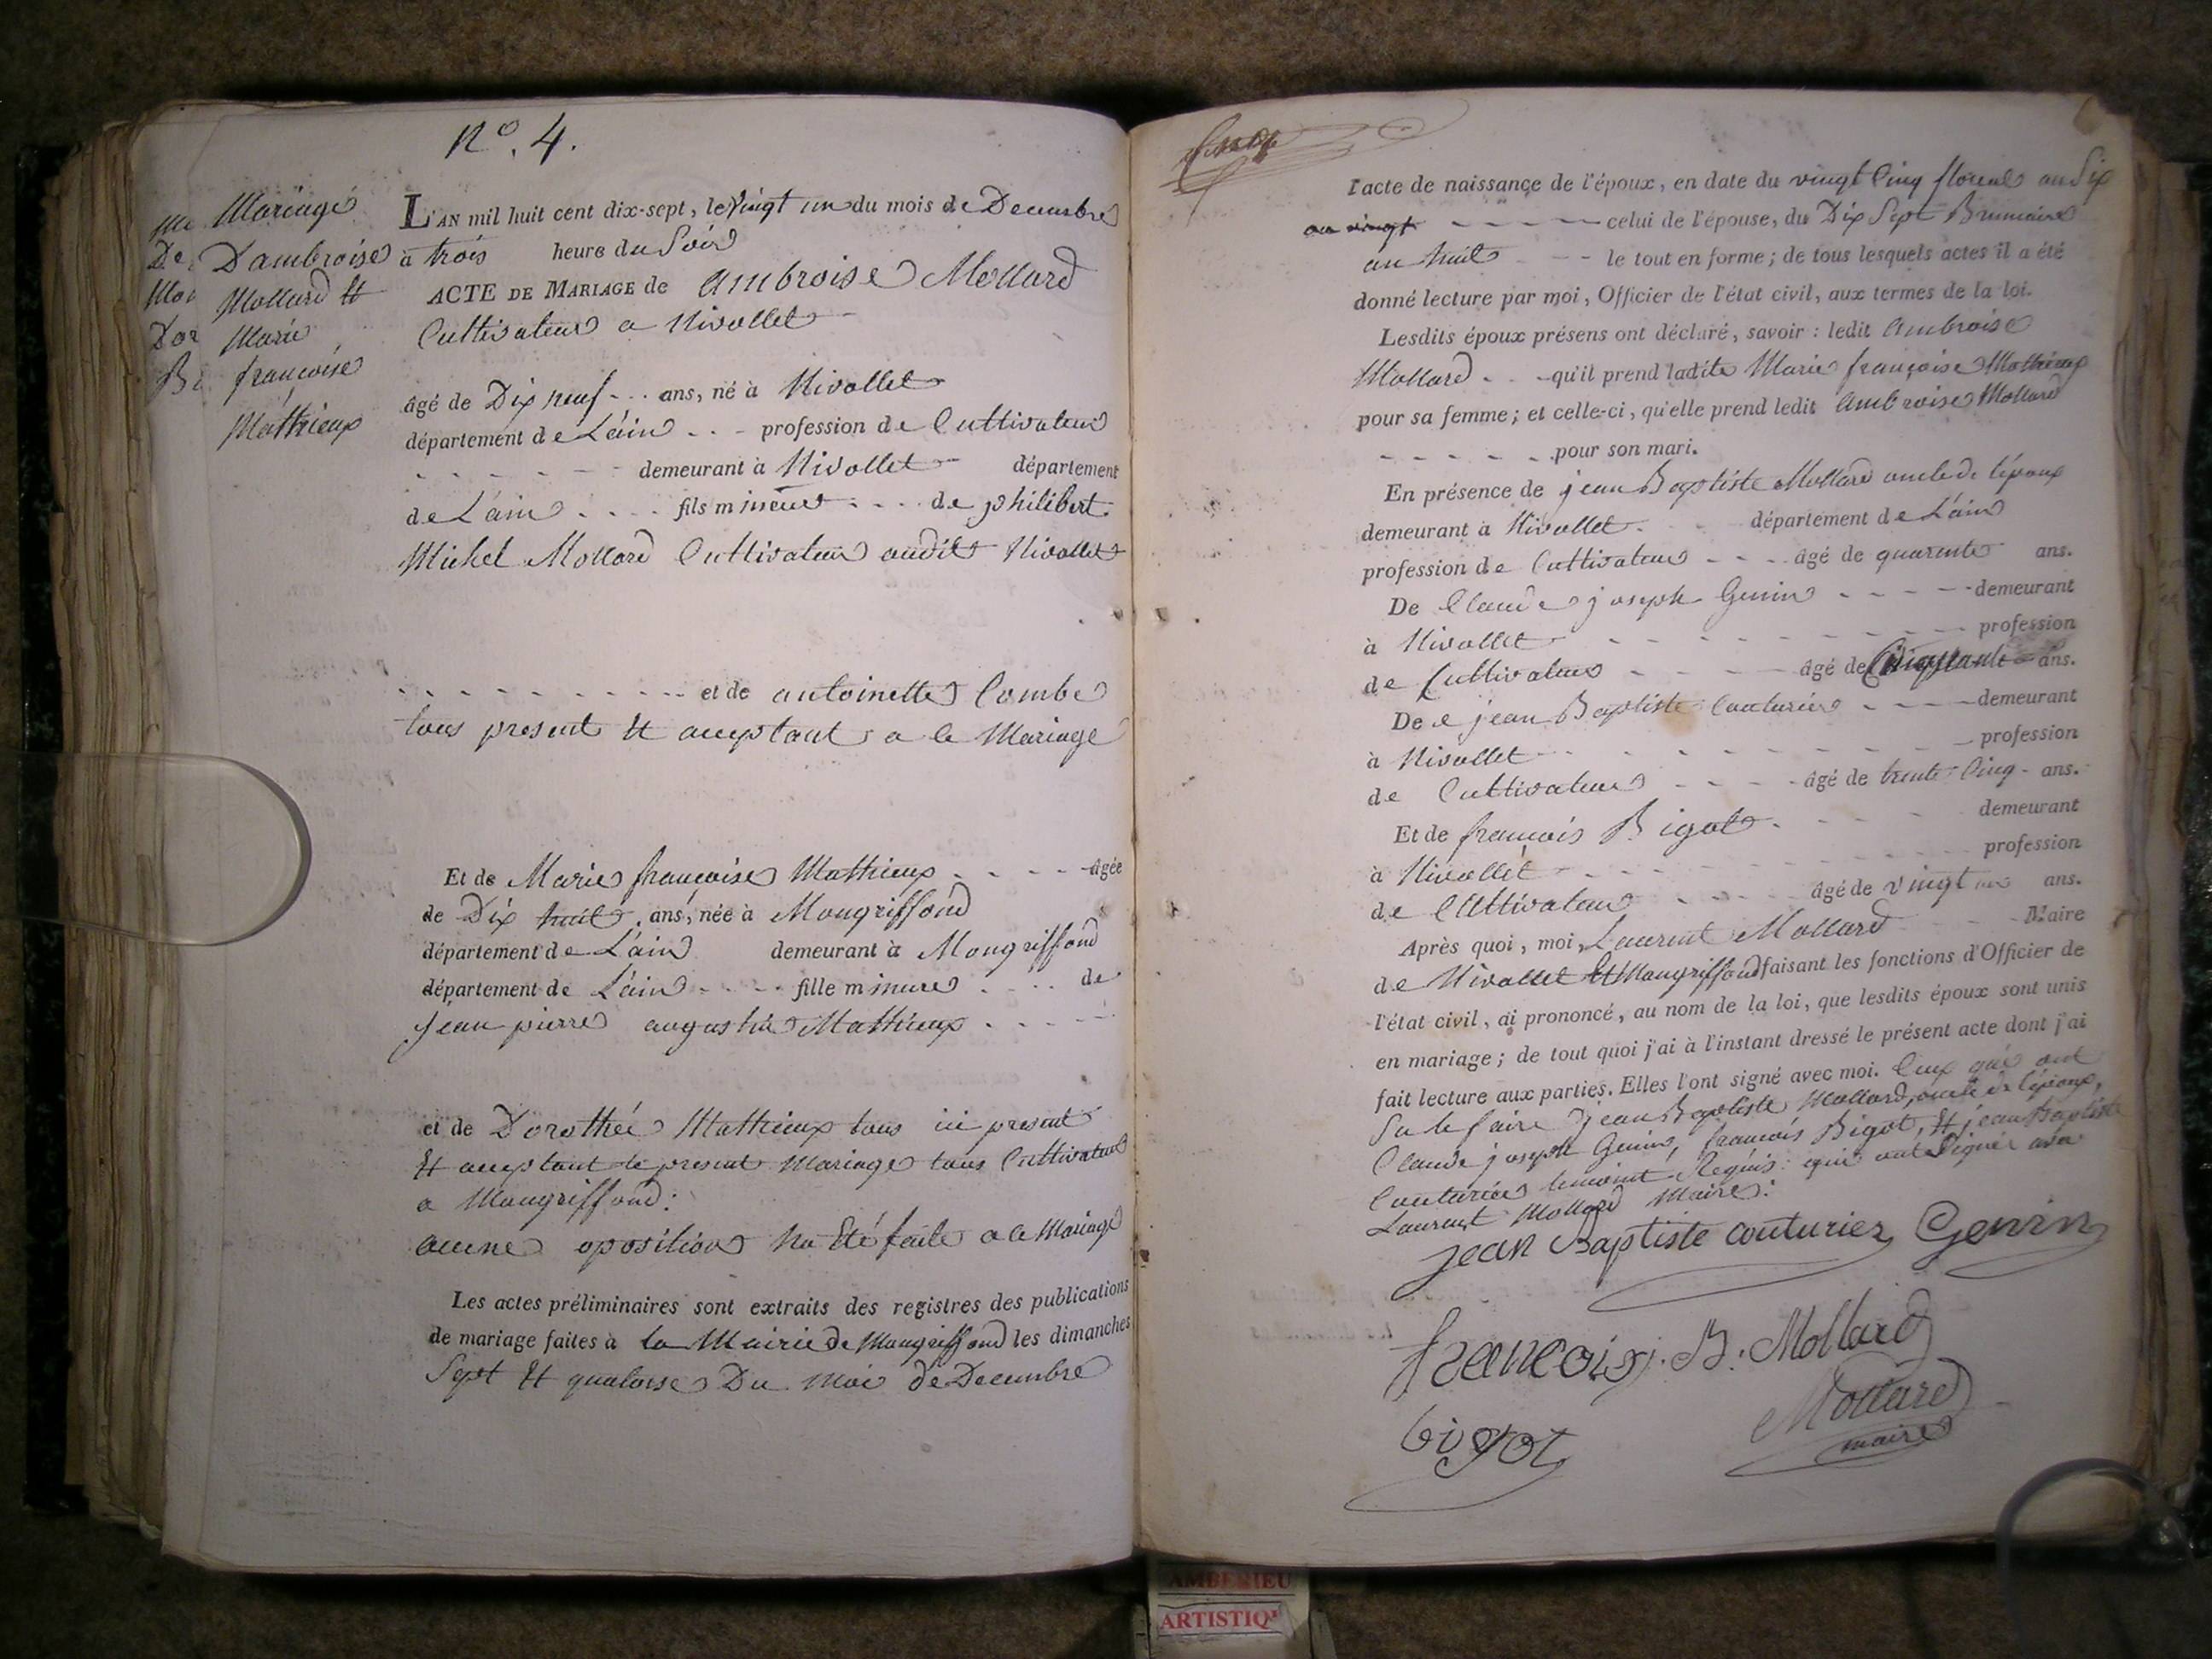 N.º 4.
Mariage
Dambroise
Mollard Et
Marie
françoise
Mathieux
L'AN mil huit cent dix-sept, le vingt un du mois de Decembre
à trois heure du Soir
ACTE DE MARIAGE de Ambroise Mollard
Cultivateur a Nivollet
âgé de Dix neuf - - - ans, né à Nivollet
département de L'ain - - - profession de Cultivateur
- - - - - - demeurant à Nivollet département
de L'ain - - - - fils mineur - - - - de philibert
Michel Mollard Cultivateur audit Nivollet
- - - - - - - - - - et de antoinette Combe
tous present Et aceptant a ce Mariage
Et de Marie françoise Mathieux - - - - âgée
de Dix huit ans, née à Mongriffond
département de L'ain demeurant à Mongriffond
département de L'ain - - - - fille mineure - - - - de
Jean pierre augustin Mathieux - - - -
et de Dorothée Mathieux tous ici present
Et aceptant le present Mariage tous Cultivateur
a Mongriffond :
aucune oposition na Eté faite a ce Mariage
Les actes préliminaires sont extraits des registres des publications
de mariage faites à la Mairie de Mongriffond les dimanches
Sept Et quatorse Du Moi de Decembre
l'acte de naissance de l'époux, en date du vingt Cinq floreal an Six
ou vingt - - - - - celui de l'épouse, du Dix Sept Brumaire
an huit - - - le tout en forme ; de tous lesquels actes il a été
donné lecture par moi, Officier de l'état civil, aux termes de la loi.
Lesdits époux présens ont déclaré, savoir : ledit Ambroise
Mollard - - - qu'il prend ladite Marie françoise Mathieux
pour sa femme ; et celle-ci, qu'elle prend ledit Ambroise Mollard
- - - - - - pour son mari.
En présence de jean Baptiste Mollard oncle de l'époux
demeurant à Nivollet - département de L'ain
profession de Cultivateur - - - âgé de quarente ans.
De Claude joseph Genin - - - - - demeurant
à Nivollet - - - - - - - - - - profession
de Cultivateur - - - - âgé de Cinquante ans.
De jean Baptiste Couturier - - - - demeurant
à Nivollet - - - - - - - - - - profession
de Cultivateur - - - - âgé de trente Cinq - ans.
Et de françois Bigot - - - - demeurant
à Nivollet - - - - - - - - - - profession
de Cultivateur - - - - - âgé de vingt ans.
Après quoi, moi, Laurent Mollard - - Maire
de Nivollet Et Mongriffond faisant les fonctions d'Officier de
l'état civil, ai prononcé, au nom de la loi, que lesdits époux sont unis
en mariage ; de tout quoi j'ai à l'instant dressé le présent acte dont j'ai
fait lecture aux parties. Elles l'ont signé avec moi. Ceux qui ont
Su le faire jean Baptiste Mollard, oncle de l'époux,
Claude joseph Genin, françois Bigot, Et jean Baptiste
Couturier temoint Requis qui ont Signér avec
Laurent Mollard Maire :
jean Baptiste couturier Genin
francois j. B. Mollard
bigot Mollard
maire
AMBERIEU
ARTISTIQ